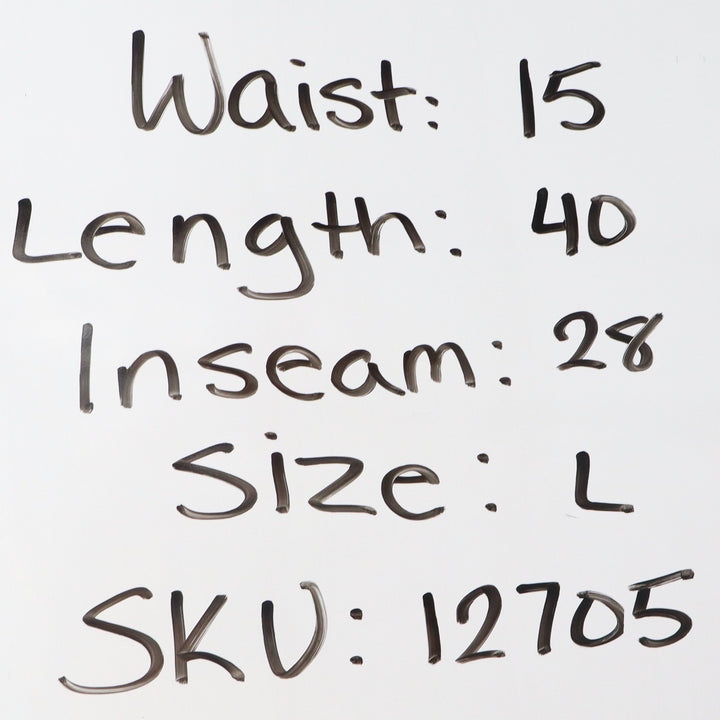 Waist: 15
Length: 40
Inseam: 28
Size: L
SKU: 12705